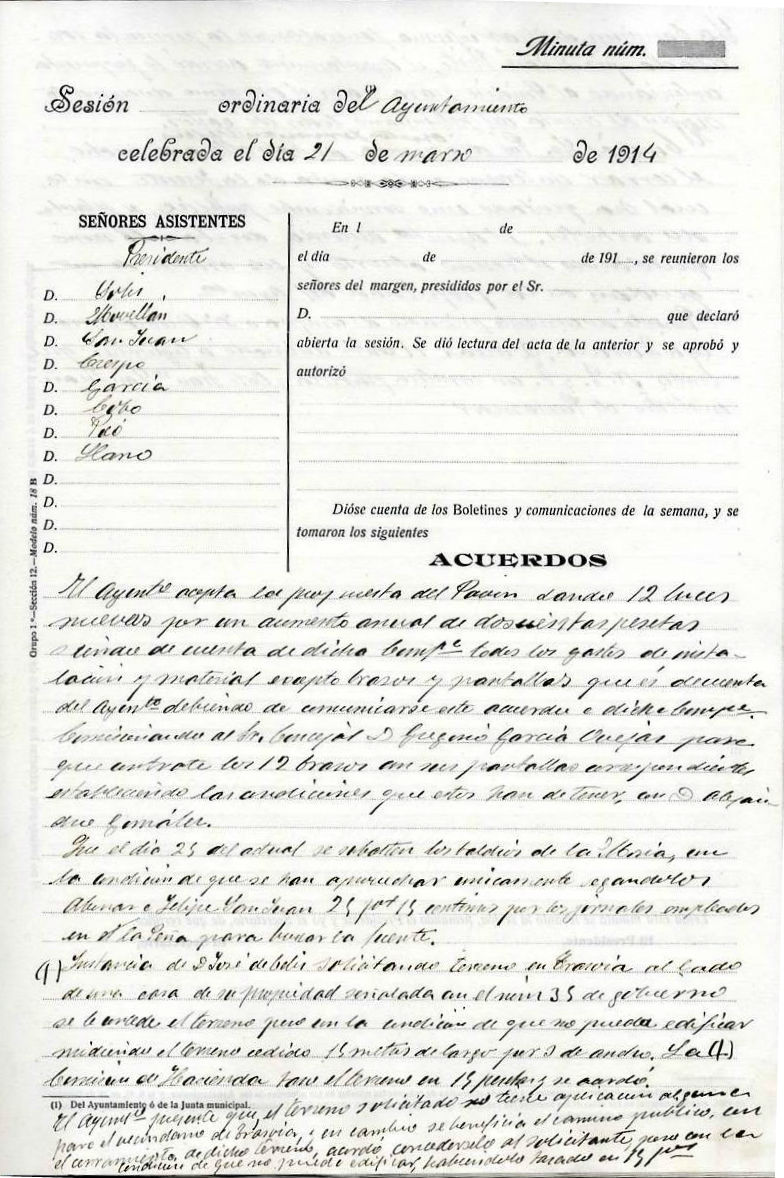 Minuta núm.
Sesión ordinaria del Ayuntamiento
celebrada el día 21 de marzo de 1914
SEÑORES ASISTENTES
Presidente
D. Solis
D. Movillán
D. San Juan
D. Crespo
D. García
D. Cobo
D.
D. Llano
D.
D.
D.
D.
Grupo 1.º—Sección 12.—Modelo núm. 18 B
En l de
el día de de 191 , se reunieron los
señores del margen, presididos por el Sr.
D. que declaró
abierta la sesión. Se dió lectura del acta de la anterior y se aprobó y
autorizó
Dióse cuenta de los Boletines y comunicaciones de la semana, y se
tomaron los siguientes
ACUERDOS
El Aynt.º acepta la propuesta del dando 12 luces
nuevas por un aumento anual de doscientas pesetas
siendo de cuenta de dicha Comp.ª todos los gastos de insta-
lación y material excepto brasos y pantallas que es de cuenta
del Aynt.º debiendo de comunicarse este acuerdo a dicha Comp.ª
Comisionando al Sr. Concejal D Gregorio García para
que contrate los 12 brasos con sus pantallas correspondientes
estableciendo las condiciones que estos han de tener, con D Alejan
dro González.
Que el día 25 del actual se subasten los baldíos de la con
la condición de que se han aprovechar unicamente segandolos
Abonar a Felipe San Juan 25 pts 15 centimos por los jornales empleados
en la Peña para buscar la fuente.
(1) Instancia de D José de solicitando terreno en Trasvia al lado
de una casa de su propiedad señalada con el núm 35 de gobierno
se le concede el terreno pero con la condición de que no pueda edificar
midiendo el terreno cedido 15 metros de largo por 3 de ancho. La (1)
Comisión de Hacienda tasó el terreno en 15 pesetas y se acordó.
(1) Del Ayuntamiento ó de la Junta municipal.
El Aynt.º que el terreno solicitado no tiene aplicacion alguna
para el vecindario de Trasvia, y en cambio se beneficia el camino publico, con
el cerramiento de dicho terreno, acordó concederselo al solicitante pero con la
condicion de que no puede edificar, habiendolo tasado en 15 pts